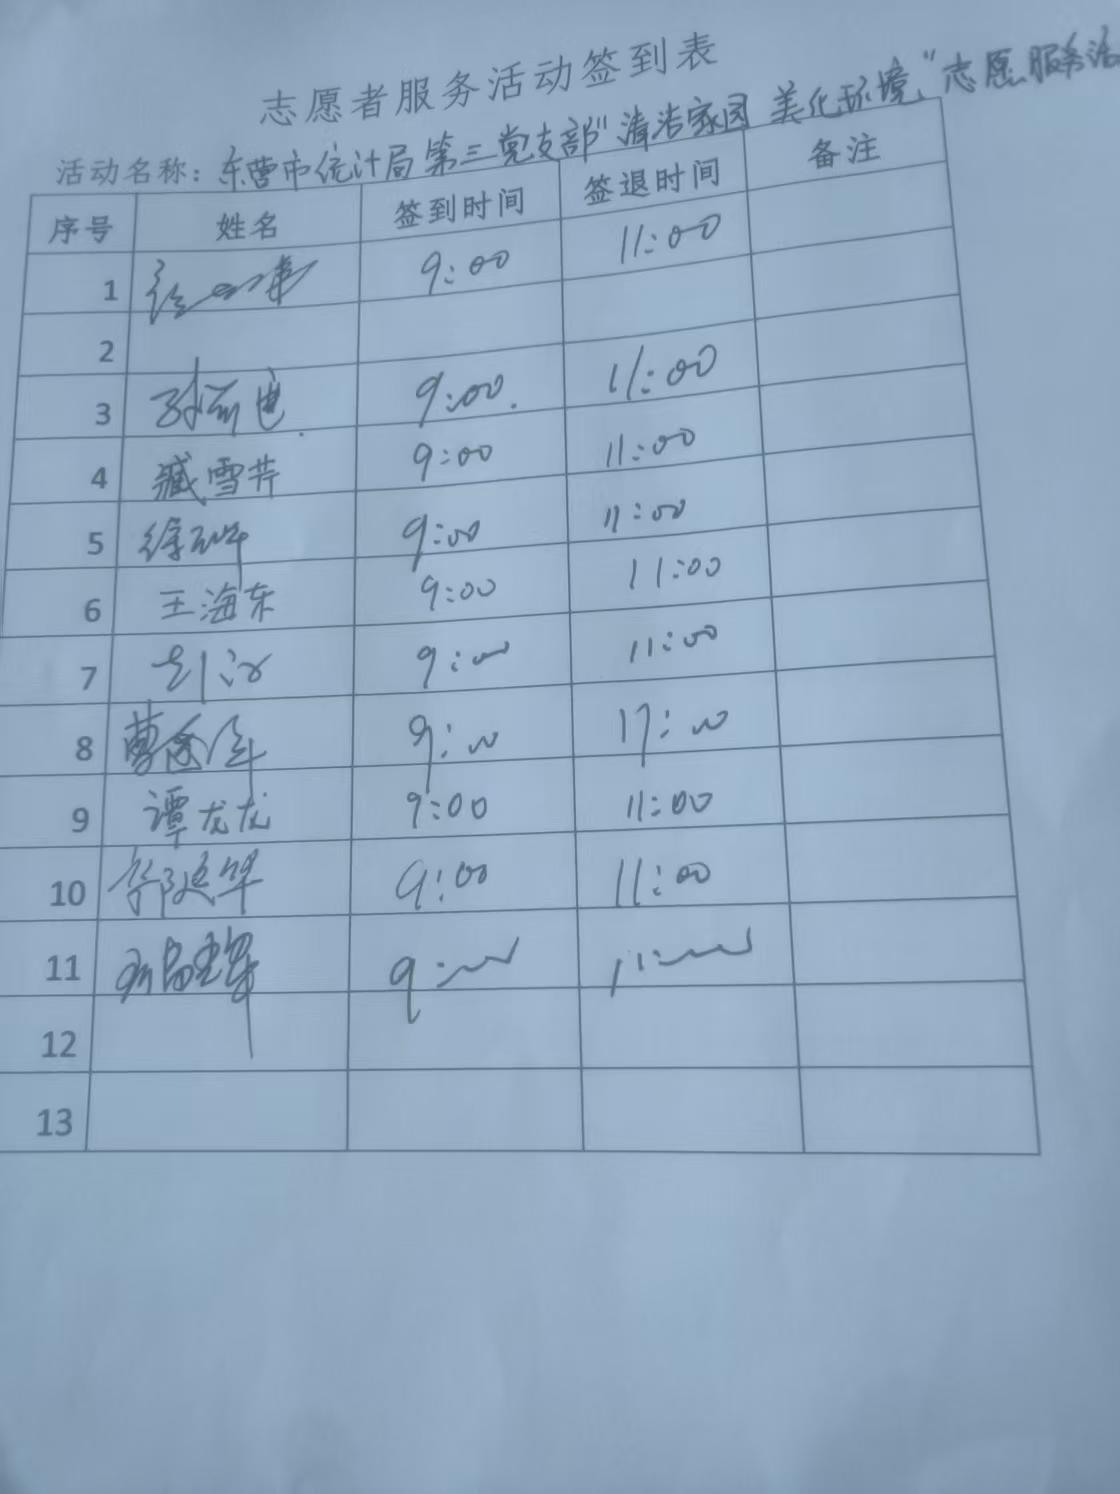 志愿者服务活动签到表
活动名称：东营市统计局第三党支部"清洁家园 美化环境"志愿服务活
序号 姓名 签到时间 签退时间 备注
1 9:00 11:00
2
3 9:00 11:00
4 臧雪芹 9:00 11:00
5 徐 9:00 11:00
6 王海东 9:00 11:00
7 9:00 11:00
8 曹 9:00 17:00
9 谭龙龙 9:00 11:00
10 郭延华 9:00 11:00
11 9:00 11:00
12
13